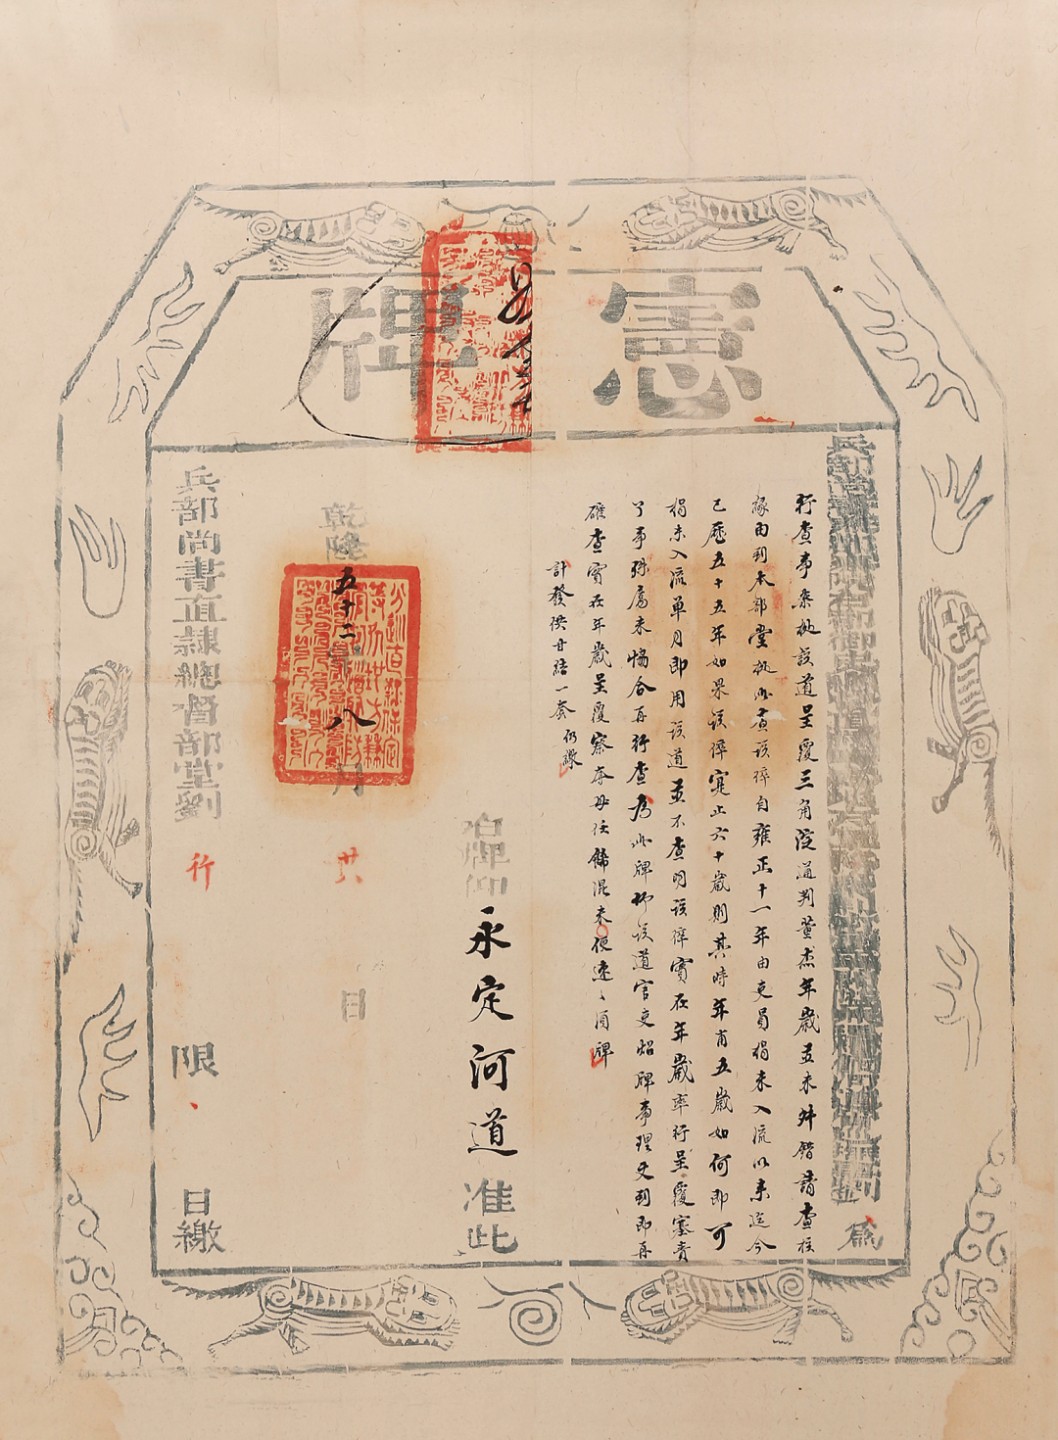 憲牌
為
行查事案據該道呈覆三角淀通判黃杰年歲並未舛錯請查核
緣由到本部堂據此查該倅自雍正十一年由吏員捐未入流以來迄今
已歷五十五年如果該倅寔止六十歲則其時年甫五歲如何即可
捐未入流單月即用該道並不查明該倅實在年歲率行呈覆塞責
了事殊屬未協合再行查為此牌仰該道官吏照牌事理文到即再
確查實在年歲呈覆察奪毋任飾混未便速速須牌
計發供甘結一套仍繳
右牌仰永定河道准此
乾隆五十二年八月廿八日
兵部尚書直隸總督部堂劉
行
限日繳